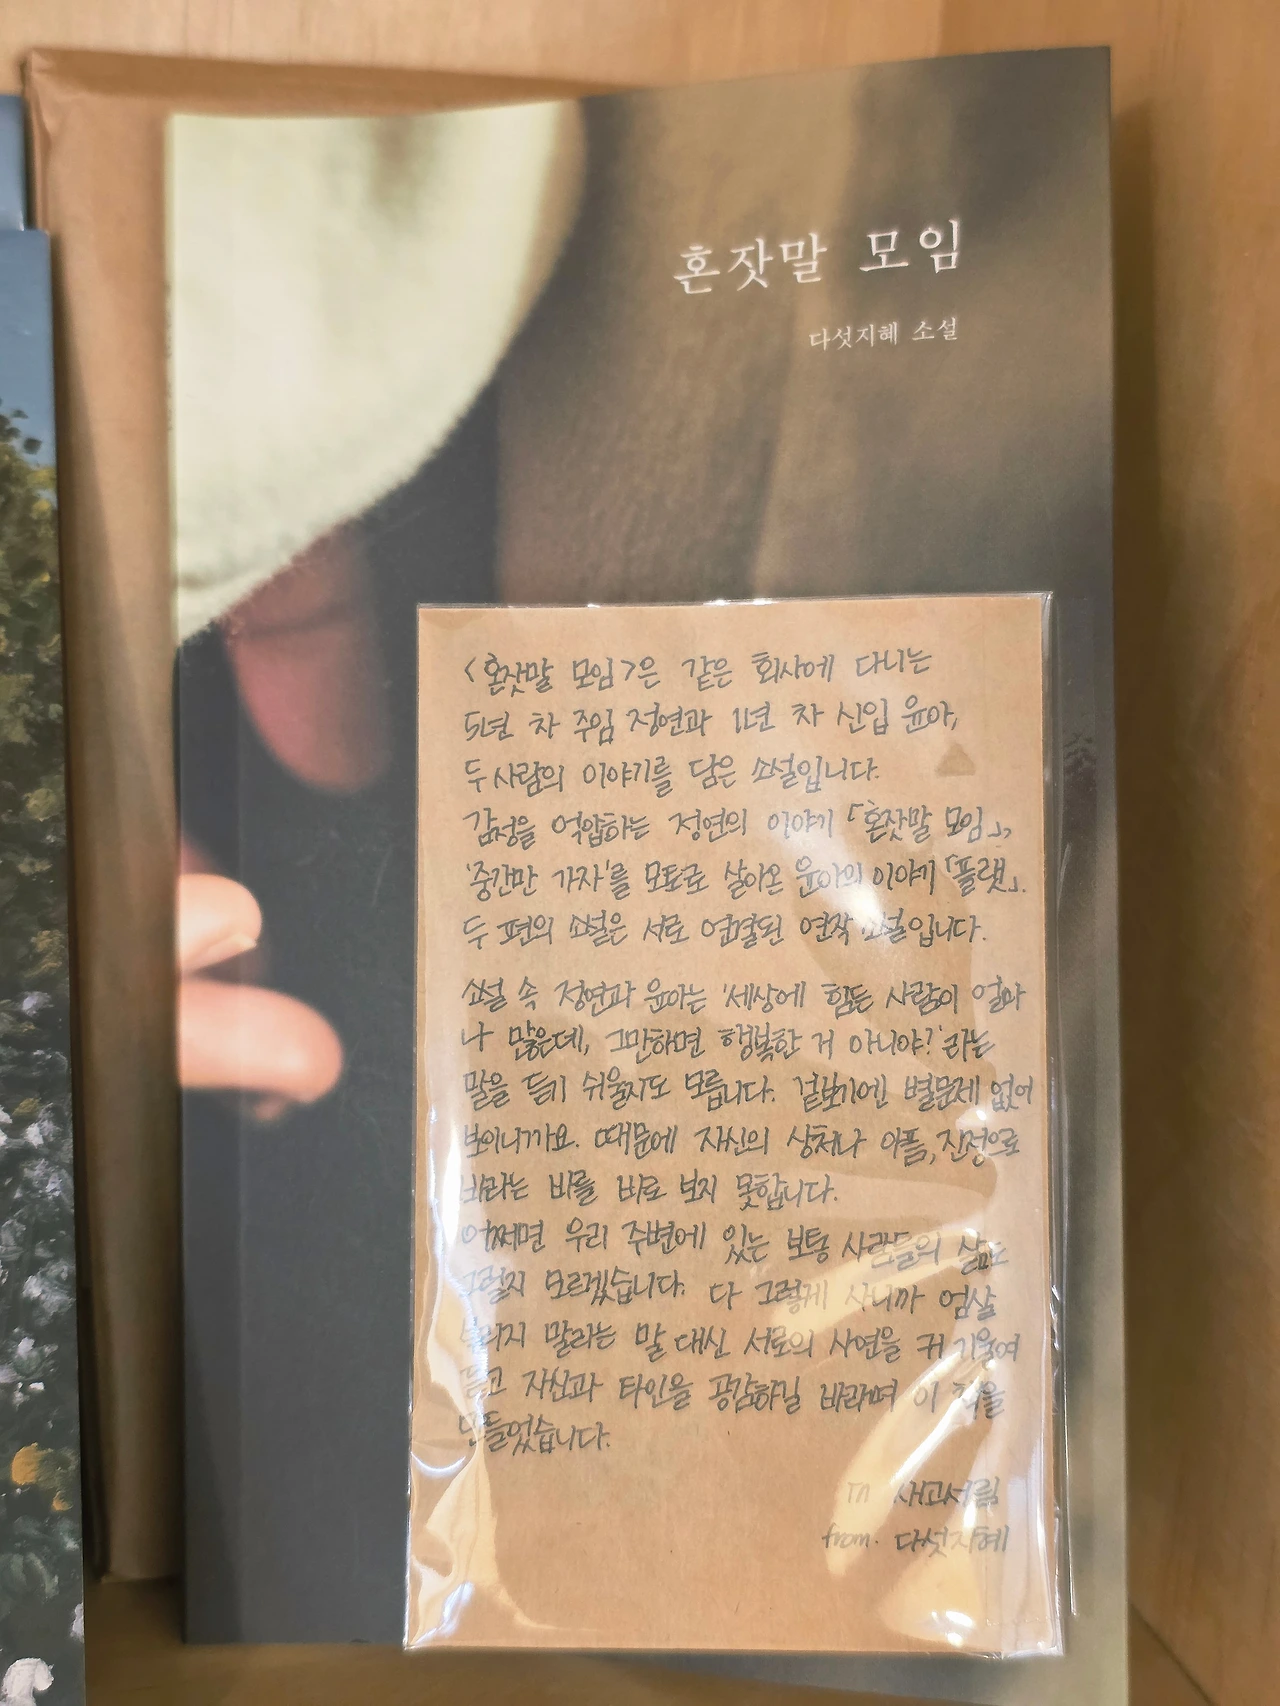 혼잣말 모임
다섯지혜 소설
<혼잣말 모임>은 같은 회사에 다니는
5년 차 주임 정연과 1년 차 신입 윤아,
두 사람의 이야기를 담은 소설입니다.
감정을 억압하는 정연의 이야기 「혼잣말 모임」,
'중간만 가자'를 모토로 살아온 윤아의 이야기 「플랫」.
두 편의 소설은 서로 연결된 연작 소설입니다.
소설 속 정연과 윤아는 '세상에 힘든 사람이 얼마
나 많은데, 그만하면 행복한 거 아니야?'라는
말을 듣기 쉬울지도 모릅니다. 겉보기엔 별문제 없어
보이니까요. 때문에 자신의 상처나 아픔, 진정으로
바라는 바를 바로 보지 못합니다.
어쩌면 우리 주변에 있는 보통 사람들의 삶도
그럴지 모르겠습니다. 다 그렇게 사니까 엄살
부리지 말라는 말 대신 서로의 사연을 귀 기울여
듣고 자신과 타인을 공감하길 바라며 이 책을
만들었습니다.
새고서림
from. 다섯지혜